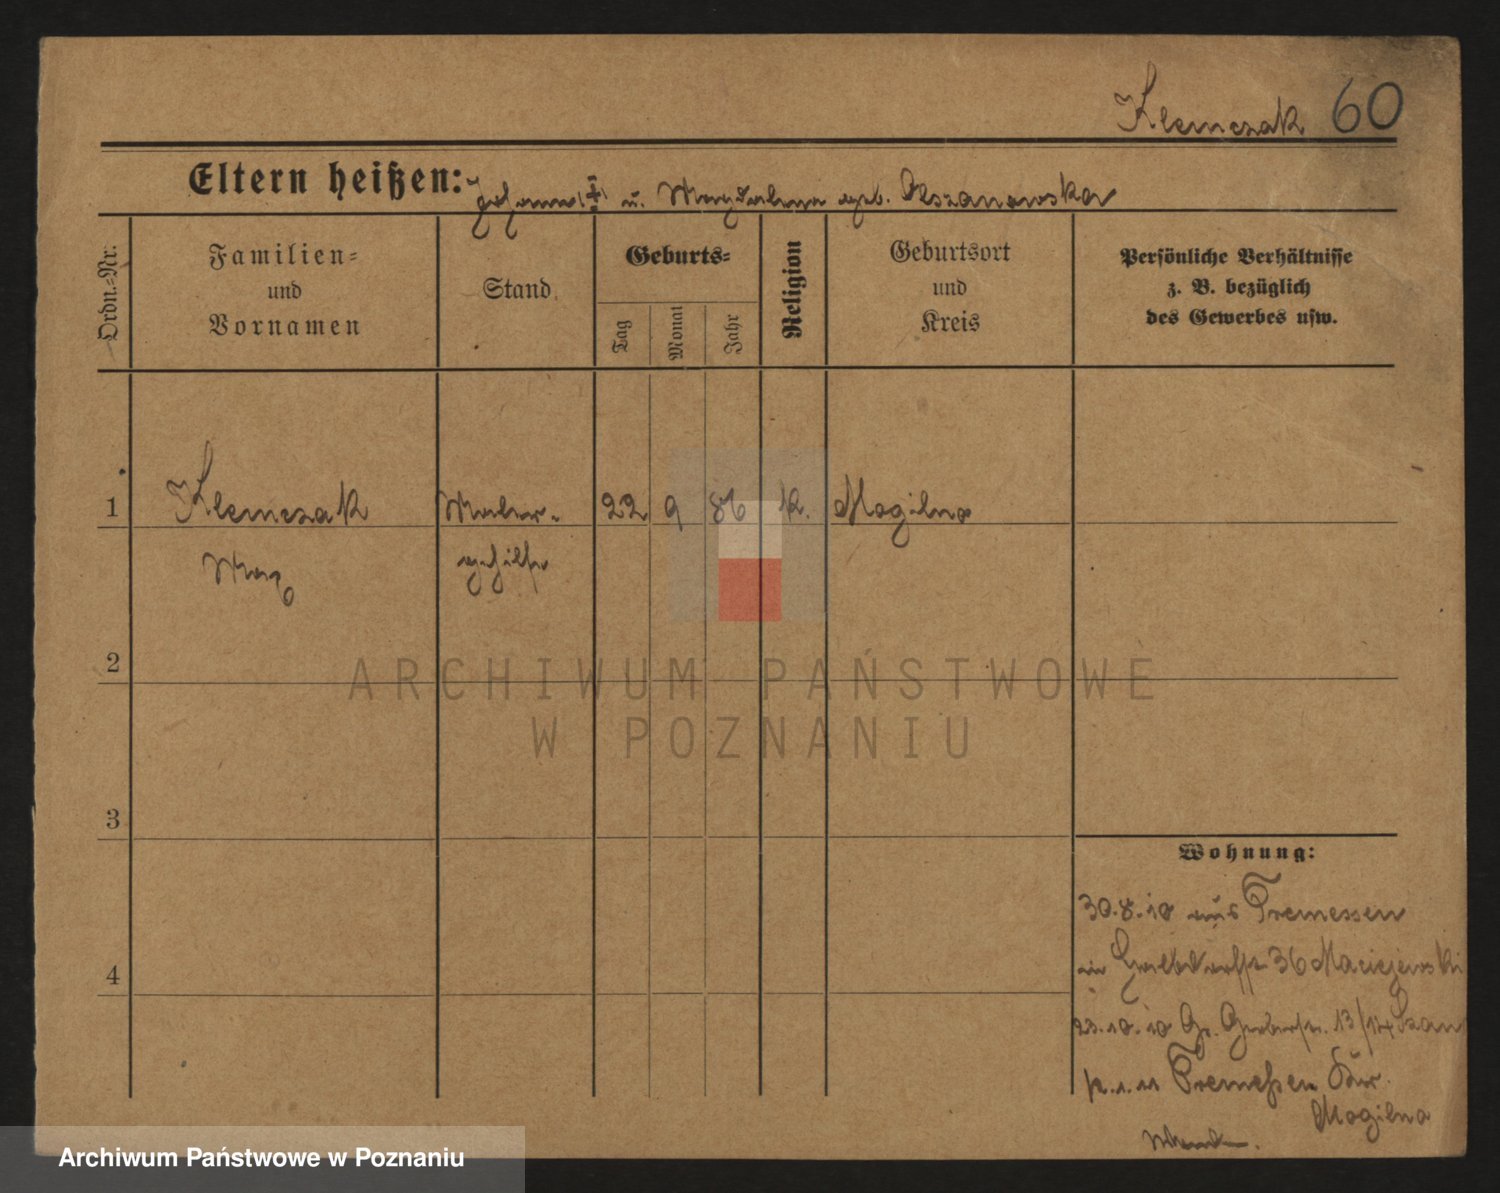 Klemczak 60
Eltern heißen: Johann (‡) u. Magdalena geb. Olszanowska
Ordn.-Nr.
Familien-
und
Vornamen
Stand
Geburts-
Tag
Monat
Jahr
Religion
Geburtsort
und
Kreis
Persönliche Verhältnisse
z. B. bezüglich
des Gewerbes usw.
1 Klemczak Maler- 22 9 86 k. Mogilno
Max gehilfe
2
ARCHIWUM PAŃSTWOWE
W POZNANIU
3
Wohnung:
30.8.10 aus Tremessen
in 36 Maciejewski
4
23.10.10 Gr. Gerberstr. 13/14
Tremeßen Kr.
Mogilno
Archiwum Państwowe w Poznaniu